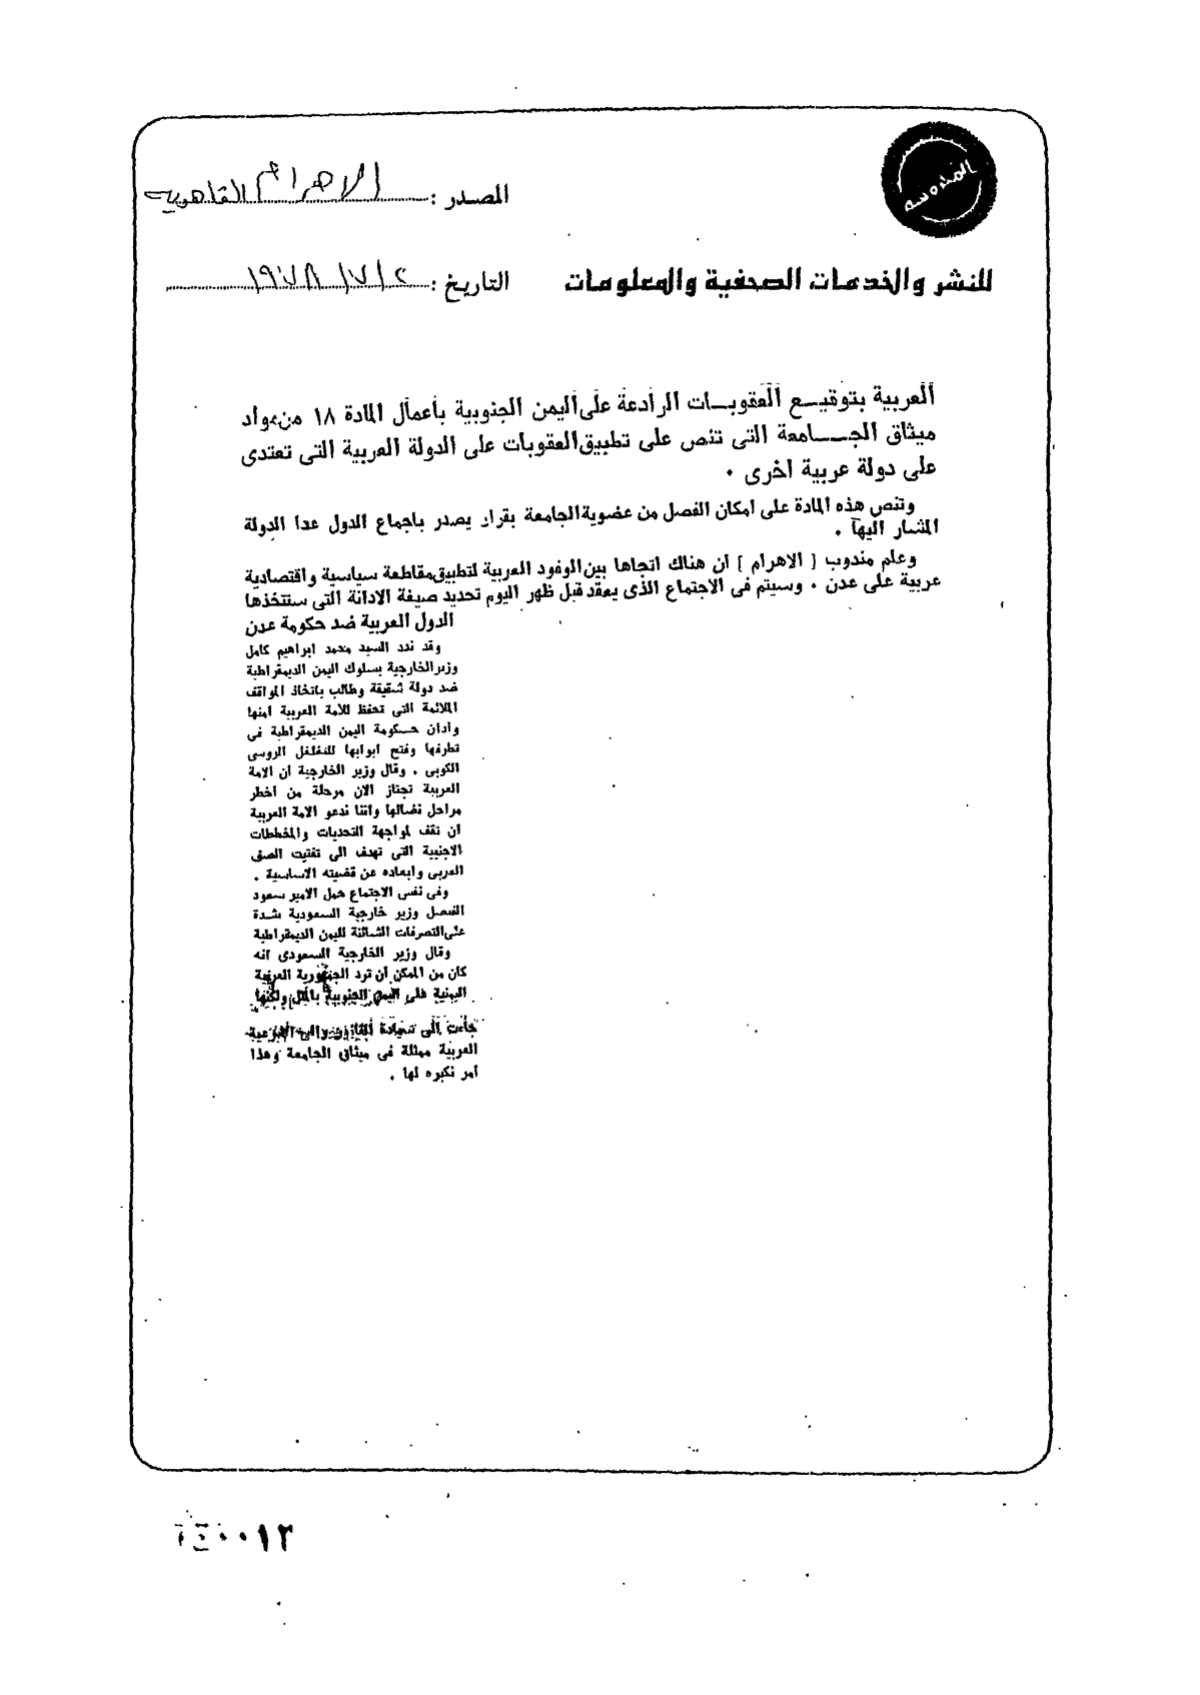 المحروسة
للنشر والخدمات الصحفية والمعلومات
المصدر : الاهرام القاهرية
التاريخ : ٢ / ٧ / ١٩٧٨
العربية بتوقيـع العقوبـات الرادعة على اليمن الجنوبية بأعمال المادة ١٨ من مواد
ميثاق الجـــامعة التى تنص على تطبيق العقوبات على الدولة العربية التى تعتدى
على دولة عربية اخرى .
وتنص هذه المادة على امكان الفصل من عضوية الجامعة بقرار يصدر باجماع الدول عدا الدولة
المشار اليها .
وعلم مندوب [ الاهرام ] ان هناك اتجاها بين الوفود العربية لتطبيق مقاطعة سياسية واقتصادية
عربية على عدن . وسيتم فى الاجتماع الذى يعقد قبل ظهر اليوم تحديد صيغة الادانة التى ستتخذها
الدول العربية ضد حكومة عدن
وقد ندد السيد محمد ابراهيم كامل
وزير الخارجية بسلوك اليمن الديمقراطية
ضد دولة شقيقة وطالب باتخاذ المواقف
الملائمة التى تحفظ للامة العربية امنها
وادان حـكومة اليمن الديمقراطية فى
تطرفها وفتح ابوابها للتغلغل الروسى
الكوبى . وقال وزير الخارجية ان الامة
العربية تجتاز الان مرحلة من اخطر
مراحل نضالها واننا ندعو الامة العربية
ان نقف لمواجهة التحديات والمخططات
الاجنبية التى تهدف الى تفتيت الصف
العربى وابعاده عن قضيته الاساسية .
وفى نفس الاجتماع حمل الامير سعود
الفيصل وزير خارجية السعودية بشدة
على التصرفات الشائنة لليمن الديمقراطية
وقال وزير الخارجية السعودى انه
كان من الممكن ان ترد الجمهورية العربية
اليمنية على اليمن الجنوبية بالمثل ولكنها
جاءت الى القانون والى الشرعية
العربية ممثلة فى ميثاق الجامعة وهذا
امر نكبره لها .
٠٠١٢